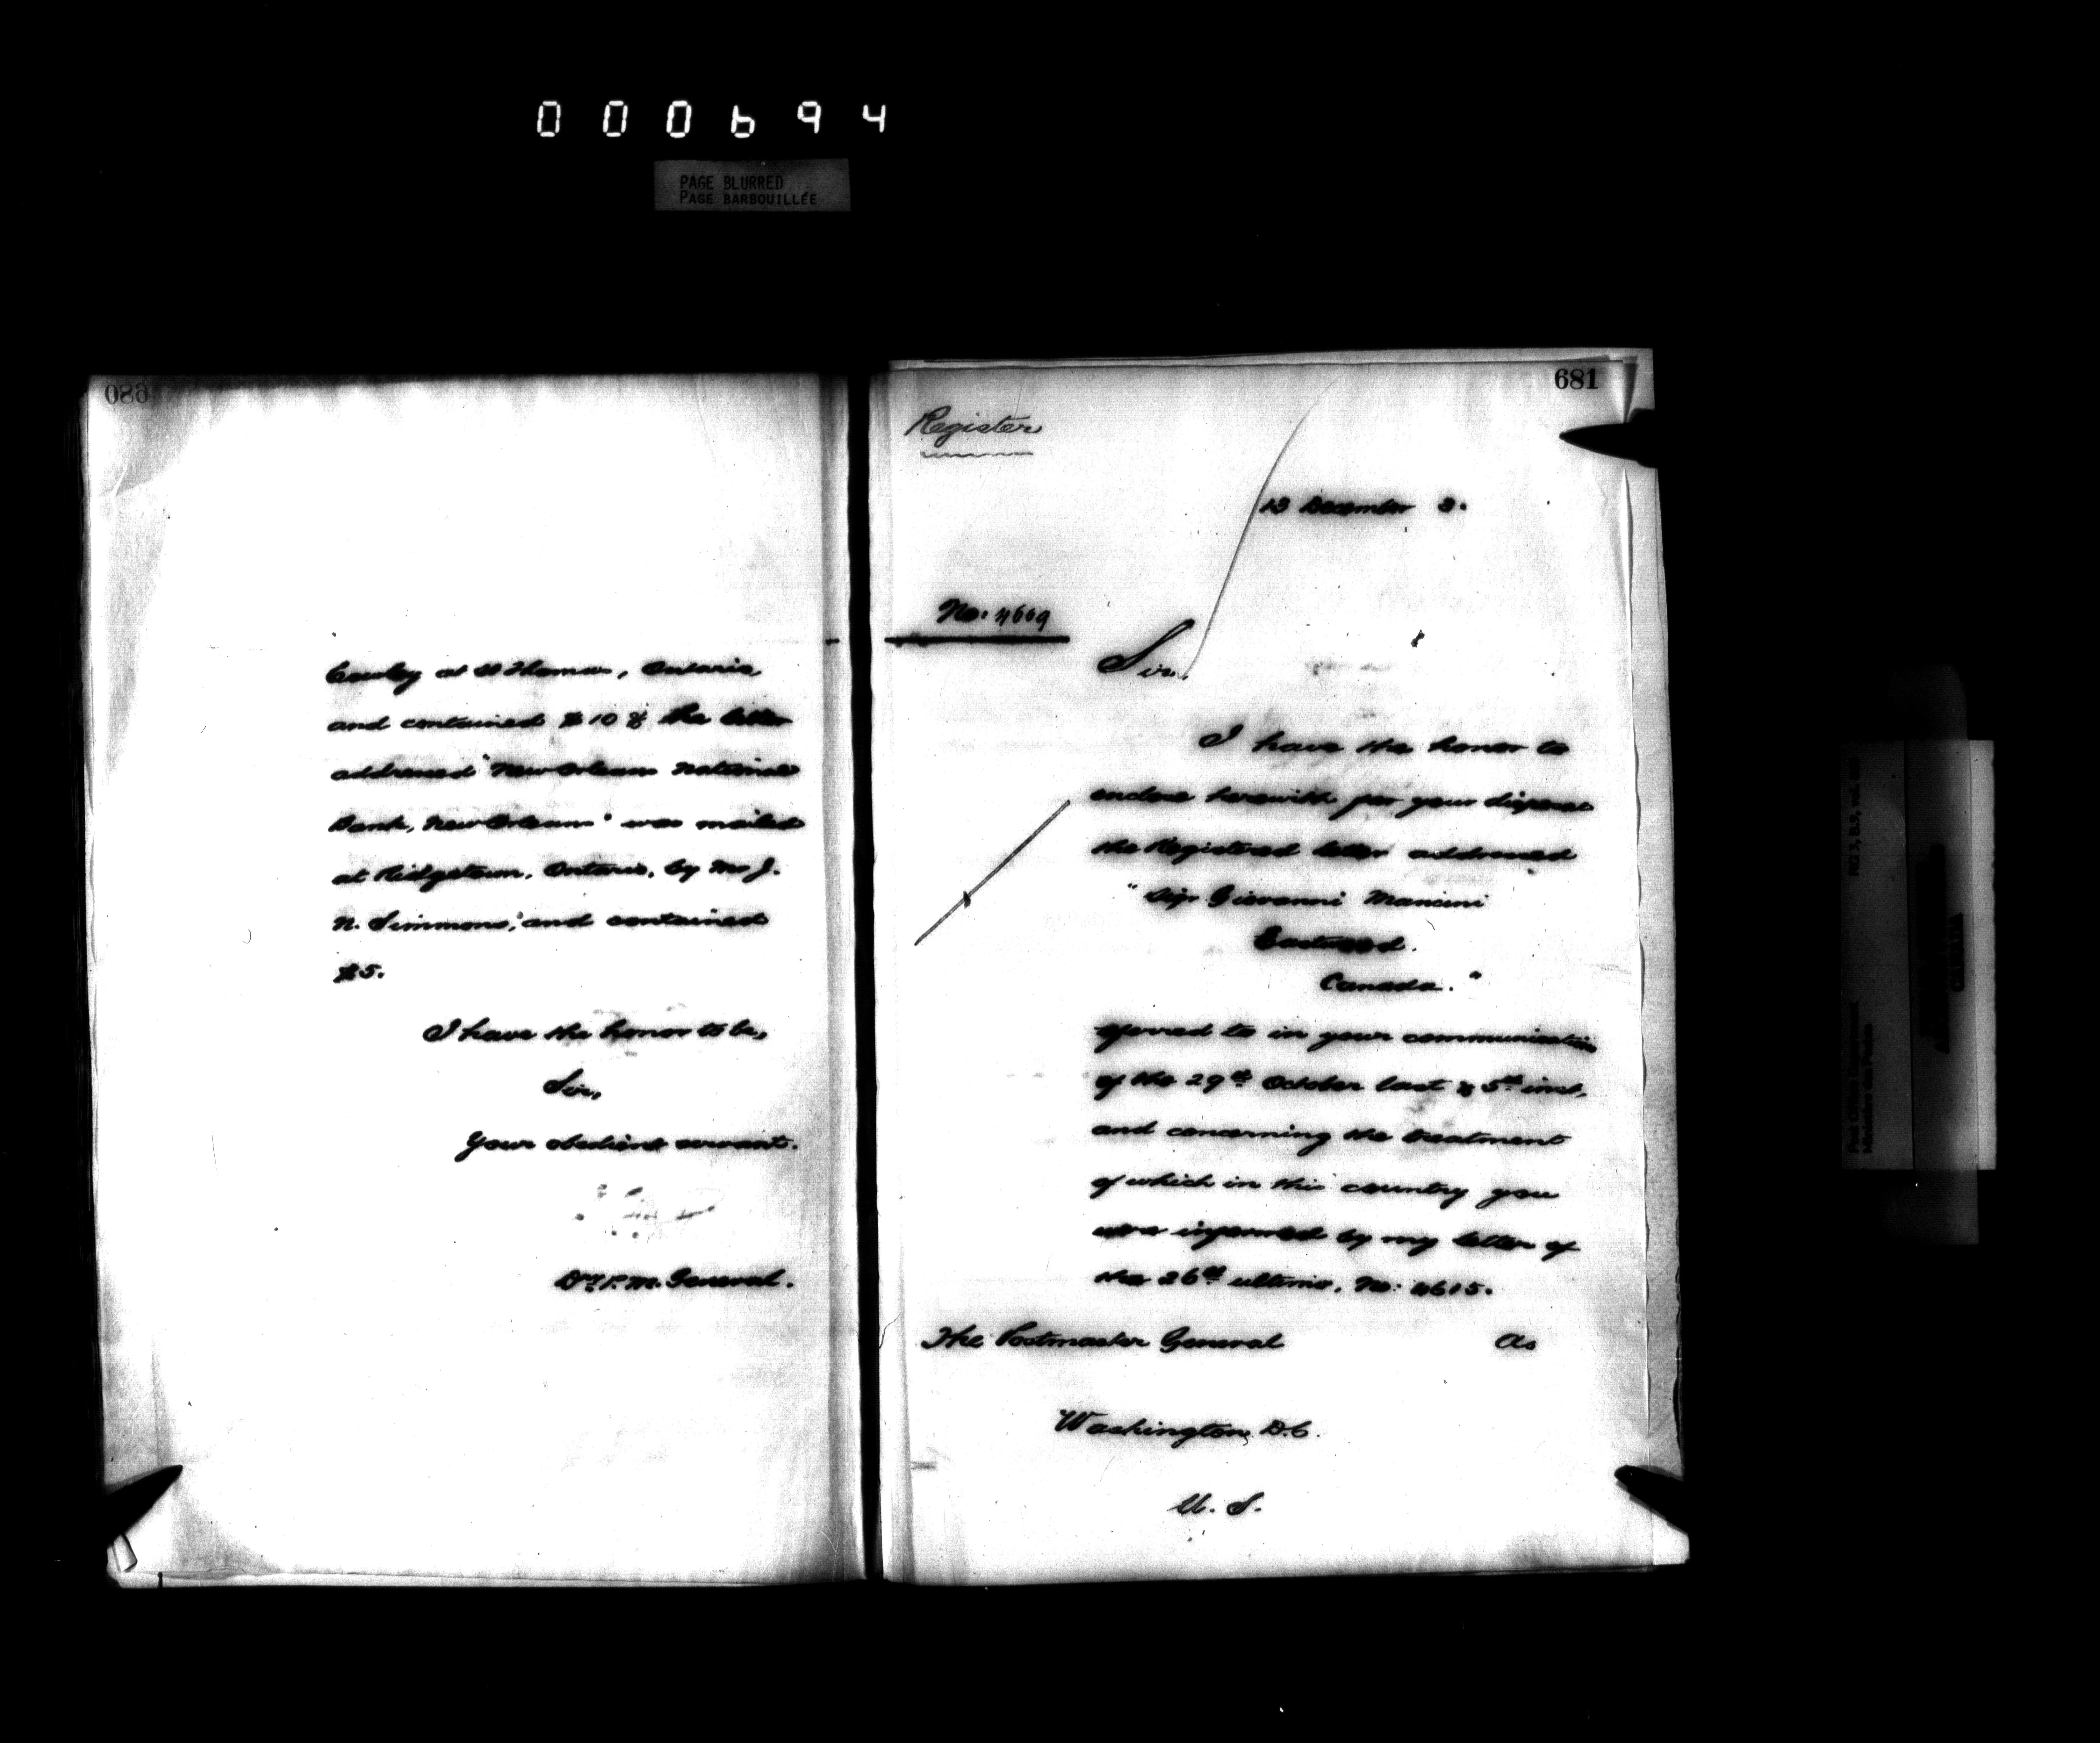 000694
PAGE BLURRED
PAGE BARBOUILLÉE
680
Cowley at St Thomas, Ontario,
and contained $10 & the letter
addressed "New Orleans National
Bank, New Orleans" was mailed
at Ridgetown, Ontario, by Mr J.
N. Simmons, and contained
$5.
I have the honor to be,
Sir,
Your obedient servant.
Dy. P. M. General.
681
Register
13 December 3.
No: 4669
Sir,
I have the honor to
enclose herewith for your disposal
the Registered letter addressed
"Sigr Giovanni Mancini
Eastwood.
Canada."
referred to in your communication
of the 29th October last & 5th inst,
and concerning the treatment
of which in this country you
were informed by my letter of
the 26th ultimo, No: 4615.
The Postmaster General
As
Washington, D.C.
U. S.
RG 3, B.9, vol.
Post Office Department
Ministère des Postes